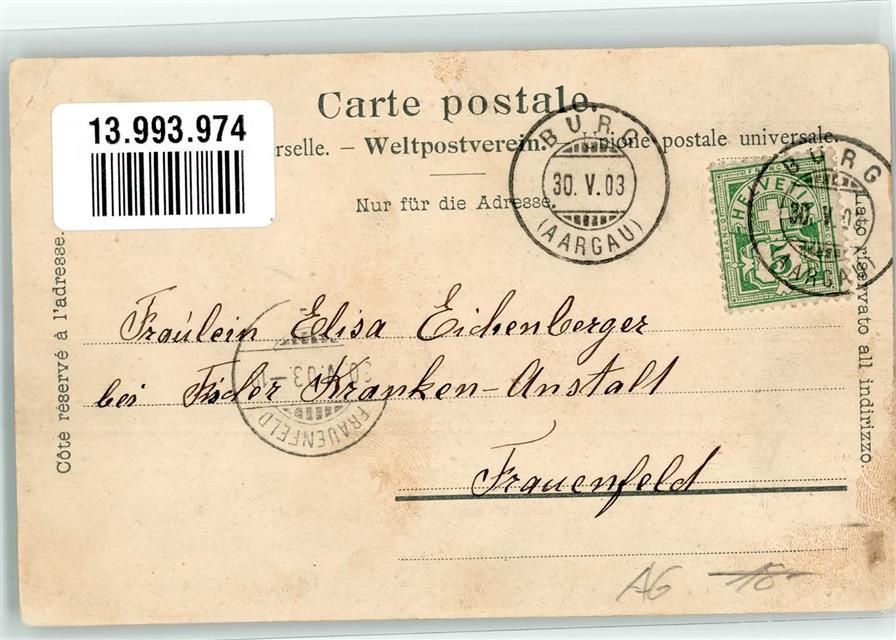 13.993.974
Carte postale.
rselle. – Weltpostverein. – Unione postale universale.
Nur für die Adresse.
Côte réservé à l'adresse.
Lato riservato all indirizzo.
BURG
30. V. 03
(AARGAU)
HELVETIA
BURG
30. V. 03
(AARGAU)
Fraülein Elisa Eichenberger
bei Kranken-Anstalt
Frauenfeld
30. V. 03.
FRAUENFELD
AG 18-